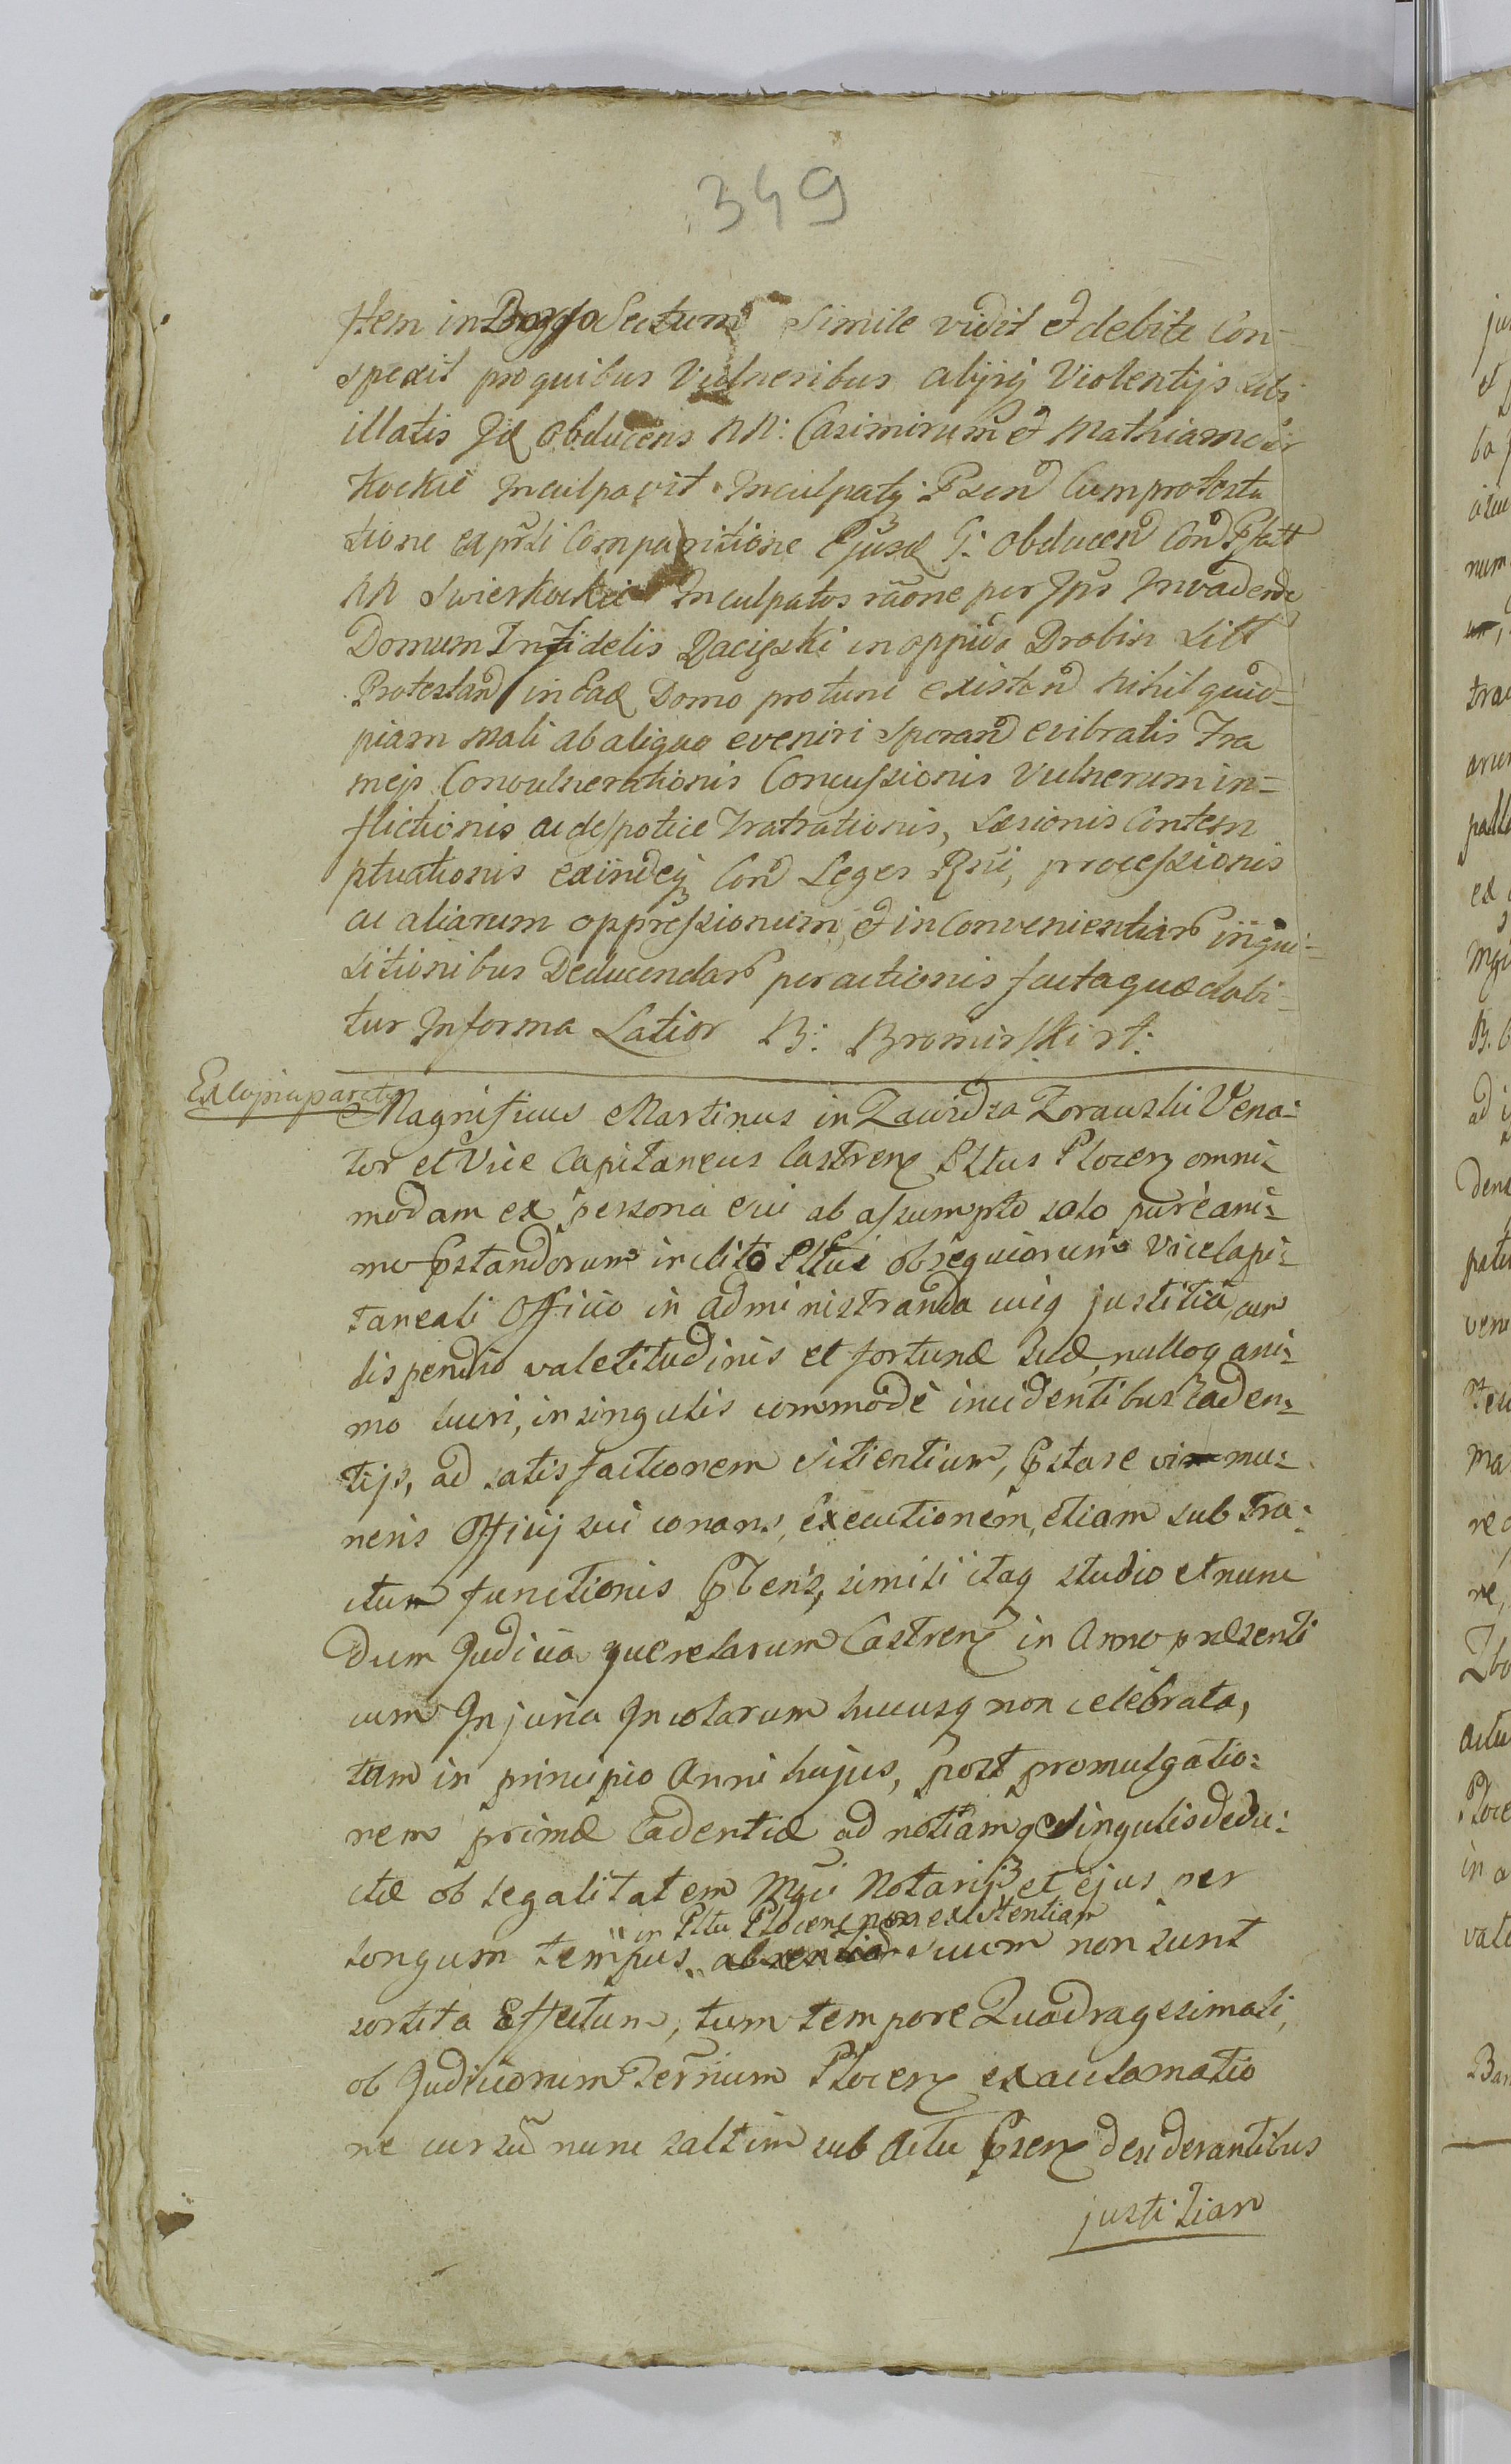 349
Item in Sectum simile vidit et debite Con-
spexit pro quibus Vulneribus alijsq Violentijs sibi
illatis Id Obducens NN: Casimirum et Mathiam
Inculpavit Inculpatq: Psen Cum protesta
tione Comparitione Ejusd G: Obducen Con
NN Swierkockie Inculpatos raone per Ips Invadendi
Domum Infidelis Raciąski in oppido Drobin Sitt
Protestan in Ead Domo protunc existen Nihil quid-
piam mali ab aliquo eveniri speran evibratis Fra
meijs Convulnerationis Concussionis Vulnerum in=
flictionis ac despotice tratrationis, Læsionis Contem
ptuationis exindeq Con Leges Rni, processionis
ac aliarum oppressionum, et inconvenientiar inqui-
sitionibus Deducendar peractionis facta quæ dabi-
tur In forma Latior B: Bromirski rt:
Ex copia parata
Magnificus Martinus in Zawidza Zorawski Vena-
tor et Vice Capitaneus Castren Pltus Plocen omni=
modam ex persona sui ab assumpto solo pure ani=
mo pstandorum inclito Pltui obsequiorum Vicecapi=
taneali Officio in administranda cuiq justitia cum
dispendio valetitudinis et fortunæ suæ, nulloq ani=
mo lucri, in singulis commode incidentibus caden=
tijs, ad satisfactionem sitientium, pstare mu=
neris Officij sui conans, Executionem, etiam sub tra=
ctum functionis similiitaq studio et nunc
dum Judicia querelarum Castren in Anno præsenti
cum Injuria Incolarum hucusq non celebrata,
tam in principio Anni hujus, post promulgatio=
nem primæ Cadentiæ ad notiamq singulis dedu=
ctæ ob legalitatem Mgci Notarij et ejus per
in Pltu Plocen non existentiam
longum tempus absentiam suum non sunt
sortita Effectum, tum tempore Quadragesimali,
ob Judiciorum Ternium Plocen exaclamatio
ne cursu nunc saltim sub Actu Psen desiderantibus
justitiam